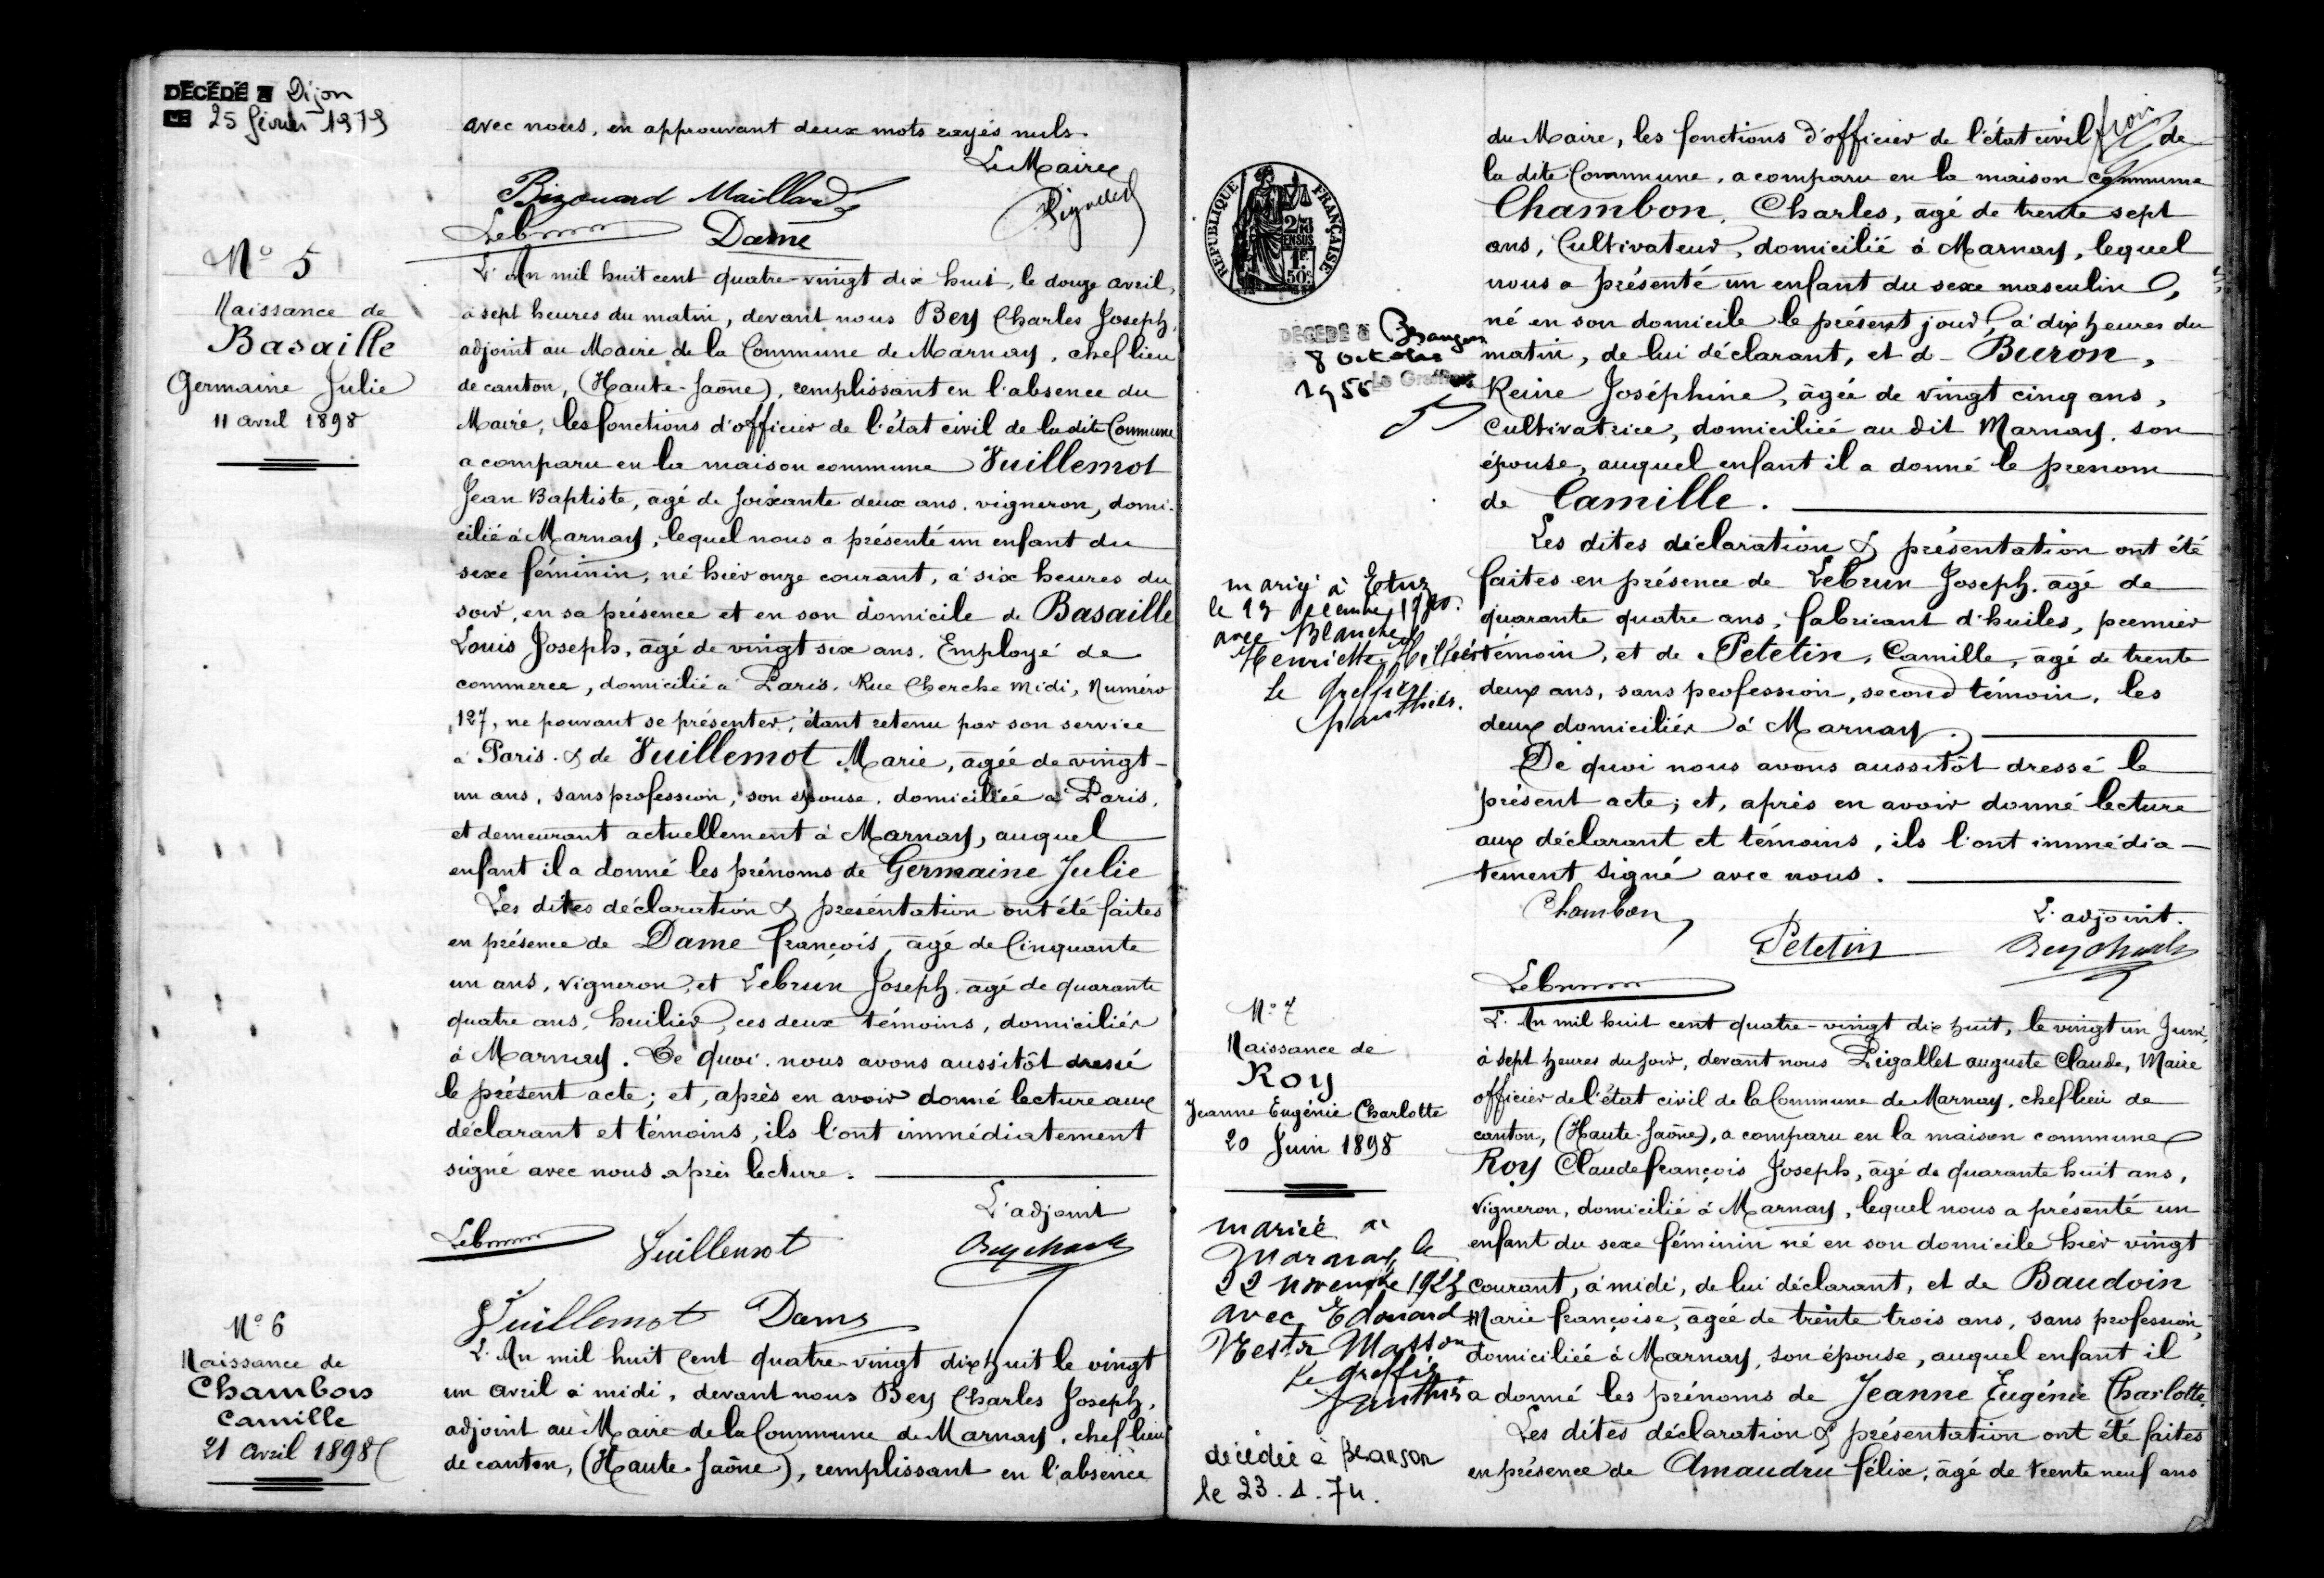 DÉCÉDÉ à Dijon
LE 25 février 1979
avec nous, en approuvant deux mots rayés nuls.
Le Maire
Bizouard Maillard
Lebrun Dame
N° 5
Naissance de
Basaille
Germaine Julie
11 avril 1898
L'An mil huit cent quatre-vingt dix huit, le douze avril,
à sept heures du matin, devant nous Bey Charles Joseph,
adjoint au Maire de la Commune de Marnay, chef lieu
de canton, (Haute-Saône), remplissant en l'absence du
Maire, les fonctions d'officier de l'état civil de la dite Commune
a comparu en la maison commune Vuillemot
Jean Baptiste, âgé de soixante deux ans, vigneron, domi-
cilié à Marnay, lequel nous a présenté un enfant du
sexe féminin, né hier onze courant, à six heures du
soir, en sa présence et en son domicile de Basaille
Louis Joseph, âgé de vingt six ans, Employé de
commerce, domicilié à Paris, Rue Cherche Midi, Numéro
127, ne pouvant se présenter, étant retenu par son service
à Paris. & de Vuillemot Marie, âgée de vingt-
un ans, sans profession, son épouse, domiciliée à Paris,
et demeurant actuellement à Marnay, auquel
enfant il a donné les prénoms de Germaine Julie
Les dites déclaration & présentation ont été faites
en présence de Dame françois, âgé de Cinquante
un ans, vigneron, et Lebrun Joseph, âgé de quarante
quatre ans, huilier, ces deux témoins, domiciliés
à Marnay. De quoi nous avons aussitôt dressé
le présent acte; et, après en avoir donné lecture aux
déclarant et témoins, ils l'ont immédiatement
signé avec nous après lecture.
L'adjoint
Lebrun Vuillemot Bey Charles
Vuillemot Dame
N° 6
Naissance de
Chambon
Camille
21 avril 1898
L'An mil huit Cent quatre-vingt dix huit le vingt
un avril à midi, devant nous Bey Charles Joseph,
adjoint au Maire de la Commune de Marnay, chef lieu
de canton, (Haute-Saône), remplissant en l'absence
RÉPUBLIQUE FRANÇAISE
2/10
EN SUS
1F
50c
du Maire, les fonctions d'officier de l'état civil de
la dite Commune, a comparu en la maison commune
Chambon, Charles, âgé de trente sept
ans, Cultivateur, domicilié à Marnay, lequel
nous a présenté un enfant du sexe masculin,
né en son domicile le présent jour, à dix heures du
matin, de lui déclarant, et d- Buron,
Reine Joséphine, âgée de vingt cinq ans,
Cultivatrice, domiciliée au dit Marnay, son
épouse, auquel enfant il a donné le prenom
de Camille.
DÉCÉDÉ à Besançon
8 octobre
1956 Le Greffier
Les dites déclaration & présentation ont été
faites en présence de Lebrun Joseph, âgé de
quarante quatre ans, fabricant d'huiles, premier
témoin, et de Petetin, Camille, âgé de trente
deux ans, sans profession, second témoin, les
deux domiciliés à Marnay.
marié à Etuz
le 13 décembre 1920
avec Blanche
Henriette
le Greffier
De quoi nous avons aussitôt dressé le
présent acte; et, après en avoir donné lecture
aux déclarant et témoins, ils l'ont immédia-
tement signé avec nous.
Chambon L'adjoint.
Petetin Bey Charles
Lebrun
N° 7
Naissance de
Roy
Jeanne Eugénie Charlotte
20 Juin 1898
L'An mil huit cent quatre-vingt dix huit, le vingt un Juin,
à sept heures du soir, devant nous Pigallet auguste Claude, Maire
officier de l'état civil de la Commune de Marnay, chef lieu de
canton, (Haute-Saône), a comparu en la maison commune
Roy Claude françois Joseph, âgé de quarante huit ans,
vigneron, domicilié à Marnay, lequel nous a présenté un
enfant du sexe féminin né en son domicile hier vingt
courant, à midi, de lui déclarant, et de Baudoin
Marie françoise, âgée de trente trois ans, sans profession,
domiciliée à Marnay, son épouse, auquel enfant il
a donné les prénoms de Jeanne Eugénie Charlotte.
Les dites déclaration & présentation ont été faites
en présence de Amaudru félix, âgé de trente neuf ans
mariée à
Marnay, le
22 novembre 1923
avec Edouard
Nestor Masson
Le greffier
décédée à Besançon
le 23.1.74.